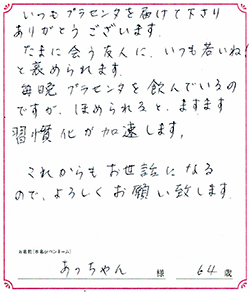 いつもプラセンタを届けて下さり
ありがとうございます。
たまに会う友人に、いつも若いね!
と褒められます。
毎晩プラセンタを飲んでいるの
ですが、ほめられると、ますます
習慣化が加速します。
これからもお世話になる
ので、よろしくお願い致します。
お名前(本名orペンネーム)
あっちゃん 様 64 歳